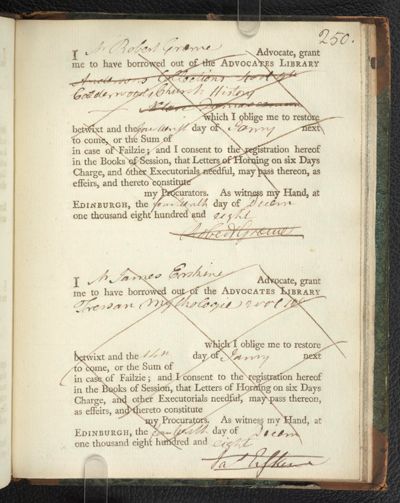 250.
I Mr Robert Graeme Advocate, grant
me to have borrowed out of the ADVOCATES LIBRARY
Anderson's Collections
Calderwood's Church History
which I oblige me to restore
betwixt and the fourteenth day of Janry next
to come, or the Sum of
in case of Failzie; and I consent to the registration hereof
in the Books of Session, that Letters of Horning on six Days
Charge, and other Executorials needful, may pass thereon, as
effeirs, and thereto constitute
my Procurators. As witness my Hand, at
EDINBURGH, the fourteenth day of Decem
one thousand eight hundred and eight
Robert Graeme
I Mr James Erskine Advocate, grant
me to have borrowed out of the ADVOCATES LIBRARY
Tressan Mythologie 2 vol
which I oblige me to restore
betwixt and the day of Janry next
to come, or the Sum of
in case of Failzie; and I consent to the registration hereof
in the Books of Session, that Letters of Horning on six Days
Charge, and other Executorials needful, may pass thereon,
as effeirs, and thereto constitute
my Procurators. As witness my Hand, at
EDINBURGH, the day of Decem
one thousand eight hundred and eight
Jas Erskine